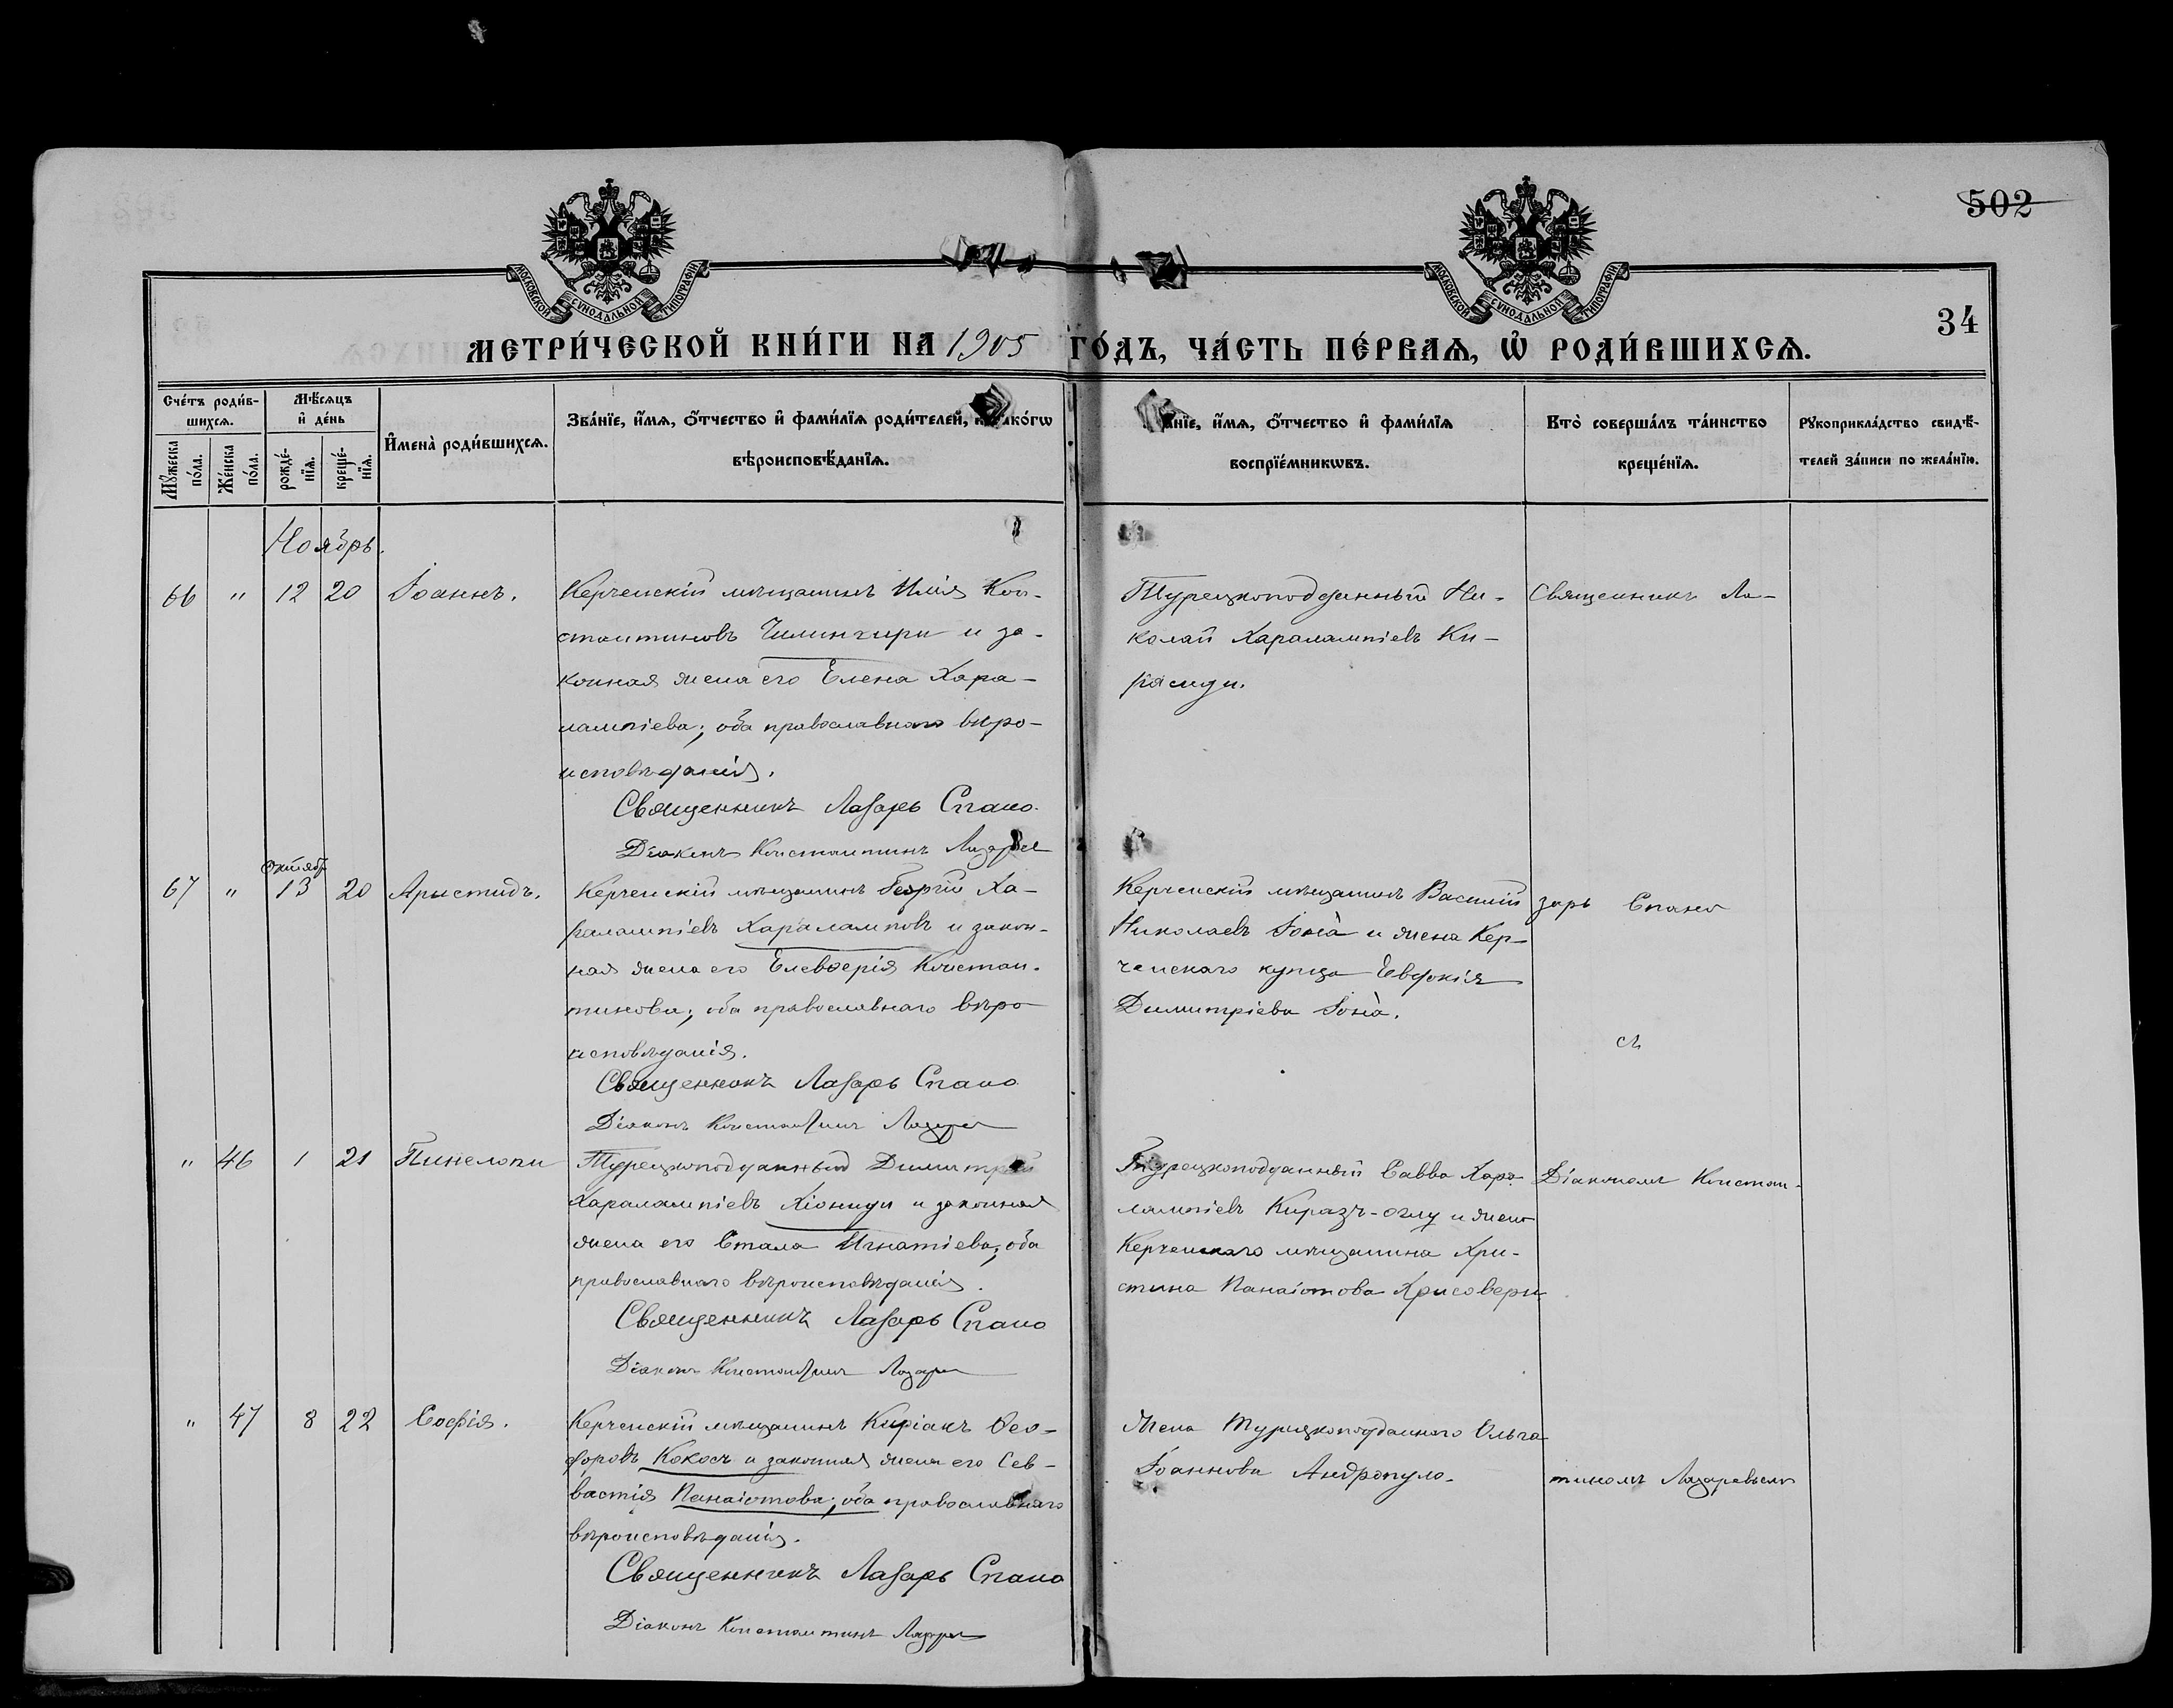 502
МОСКОВСКОЙ СУНОДАЛЬНОЙ ТИПОГРАФІИ
МОСКОВСКОЙ СУНОДАЛЬНОЙ ТИПОГРАФІИ
34
МЕТРИ́ЧЕСКОЙ КНИ́ГИ НА 1905 ГО́ДЪ, ЧА́СТЬ ПЕ́РВАѦ, Ѡ҆ РОДИ́ВШИХСѦ.
Сче́тъ роди́в-
шихсѧ.
Мꙋ́жеска по́ла.
Же́нска по́ла.
Мѣ́сѧцъ и҆ де́нь
рожде́-нїѧ.
креще́-нїѧ.
И҆мена̀ роди́вшихсѧ.
Зва́нїе, и҆́мѧ, ѻ҆́тчество и҆ фами́лїѧ роди́телей,
вѣроисповѣ́данїѧ.
и҆́мѧ, ѻ҆́тчество и҆ фами́лїѧ
воспрїе́мникѡвъ.
Кто̀ соверша́лъ та́инство
креще́нїѧ.
Рꙋкоприкла́дство свидѣ́-
телей за́писи по жела́нїю.
Ноябрь.
66 " 12 20 Іоаннъ.
Керченскій мѣщанинъ Илія Кон-
стантиновъ Чилингири и за-
конная жена его Елена Хара-
лампіева; оба православнаго вѣро-
исповѣданія.
Священникъ Лазарь Спано.
Діаконъ Константинъ
Турецкоподданный Ни-
колай Харалампіевъ Ки-
Священникъ Ла-
Октябр
67 " 13 20 Аристидъ.
Керченскій мѣщанинъ Георгій Ха-
ралампіевъ Харалампов и закон-
ная жена его Елевѳерія Констан-
тинова; оба православнаго вѣро
исповѣданія.
Священникъ Лазарь Спано
Діаконъ Константинъ
Керченскій мѣщанинъ Василій
Николаевъ Іона̀ и жена Кер-
ченскаго купца Евдокія
Димитріева Іона̀.
зарь Спано
съ
" 46 1 21 Пинелопи
Турецкоподданный Димитрій
Харалампіевъ Хіониди и законная
жена его Стала Игнатіева; оба
православнаго вѣроисповѣданія.
Священникъ Лазарь Спано
Діаконъ Константинъ
Турецкоподданный Савва Хара-
лампіевъ Киразъ-оглу и жена
Керченскаго мѣщанина Хри-
стина Панаіотова Хрисовери
Діакономъ Констан-
" 47 8 22 Софія.
Керченскій мѣщанинъ Киріакъ Ѳео-
форовъ Кокосъ и законная жена его Сев-
вастія Панаіотова; оба православнаго
вѣроисповѣданія.
Священникъ Лазарь Спано
Діаконъ Константинъ
Жена Турецкоподданнаго Ольга
Іоаннова Андропуло.
тиномъ